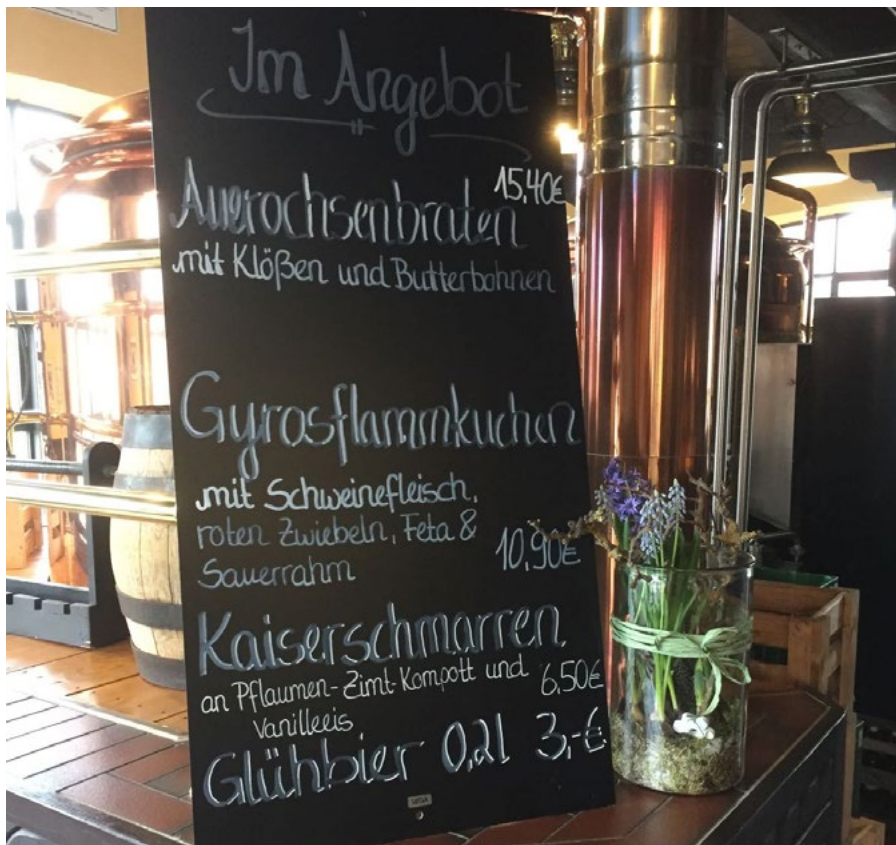 Im Angebot
15,40€
Auerochsenbraten
mit Klößen und Butterbohnen
Gyrosflammkuchen
mit Schweinefleisch,
roten Zwiebeln, Feta &
Sauerrahm 10,90€
Kaiserschmarren
an Pflaumen-Zimt-Kompott und 6.50€
Vanilleeis
Glühbier 0,2l 3,-€